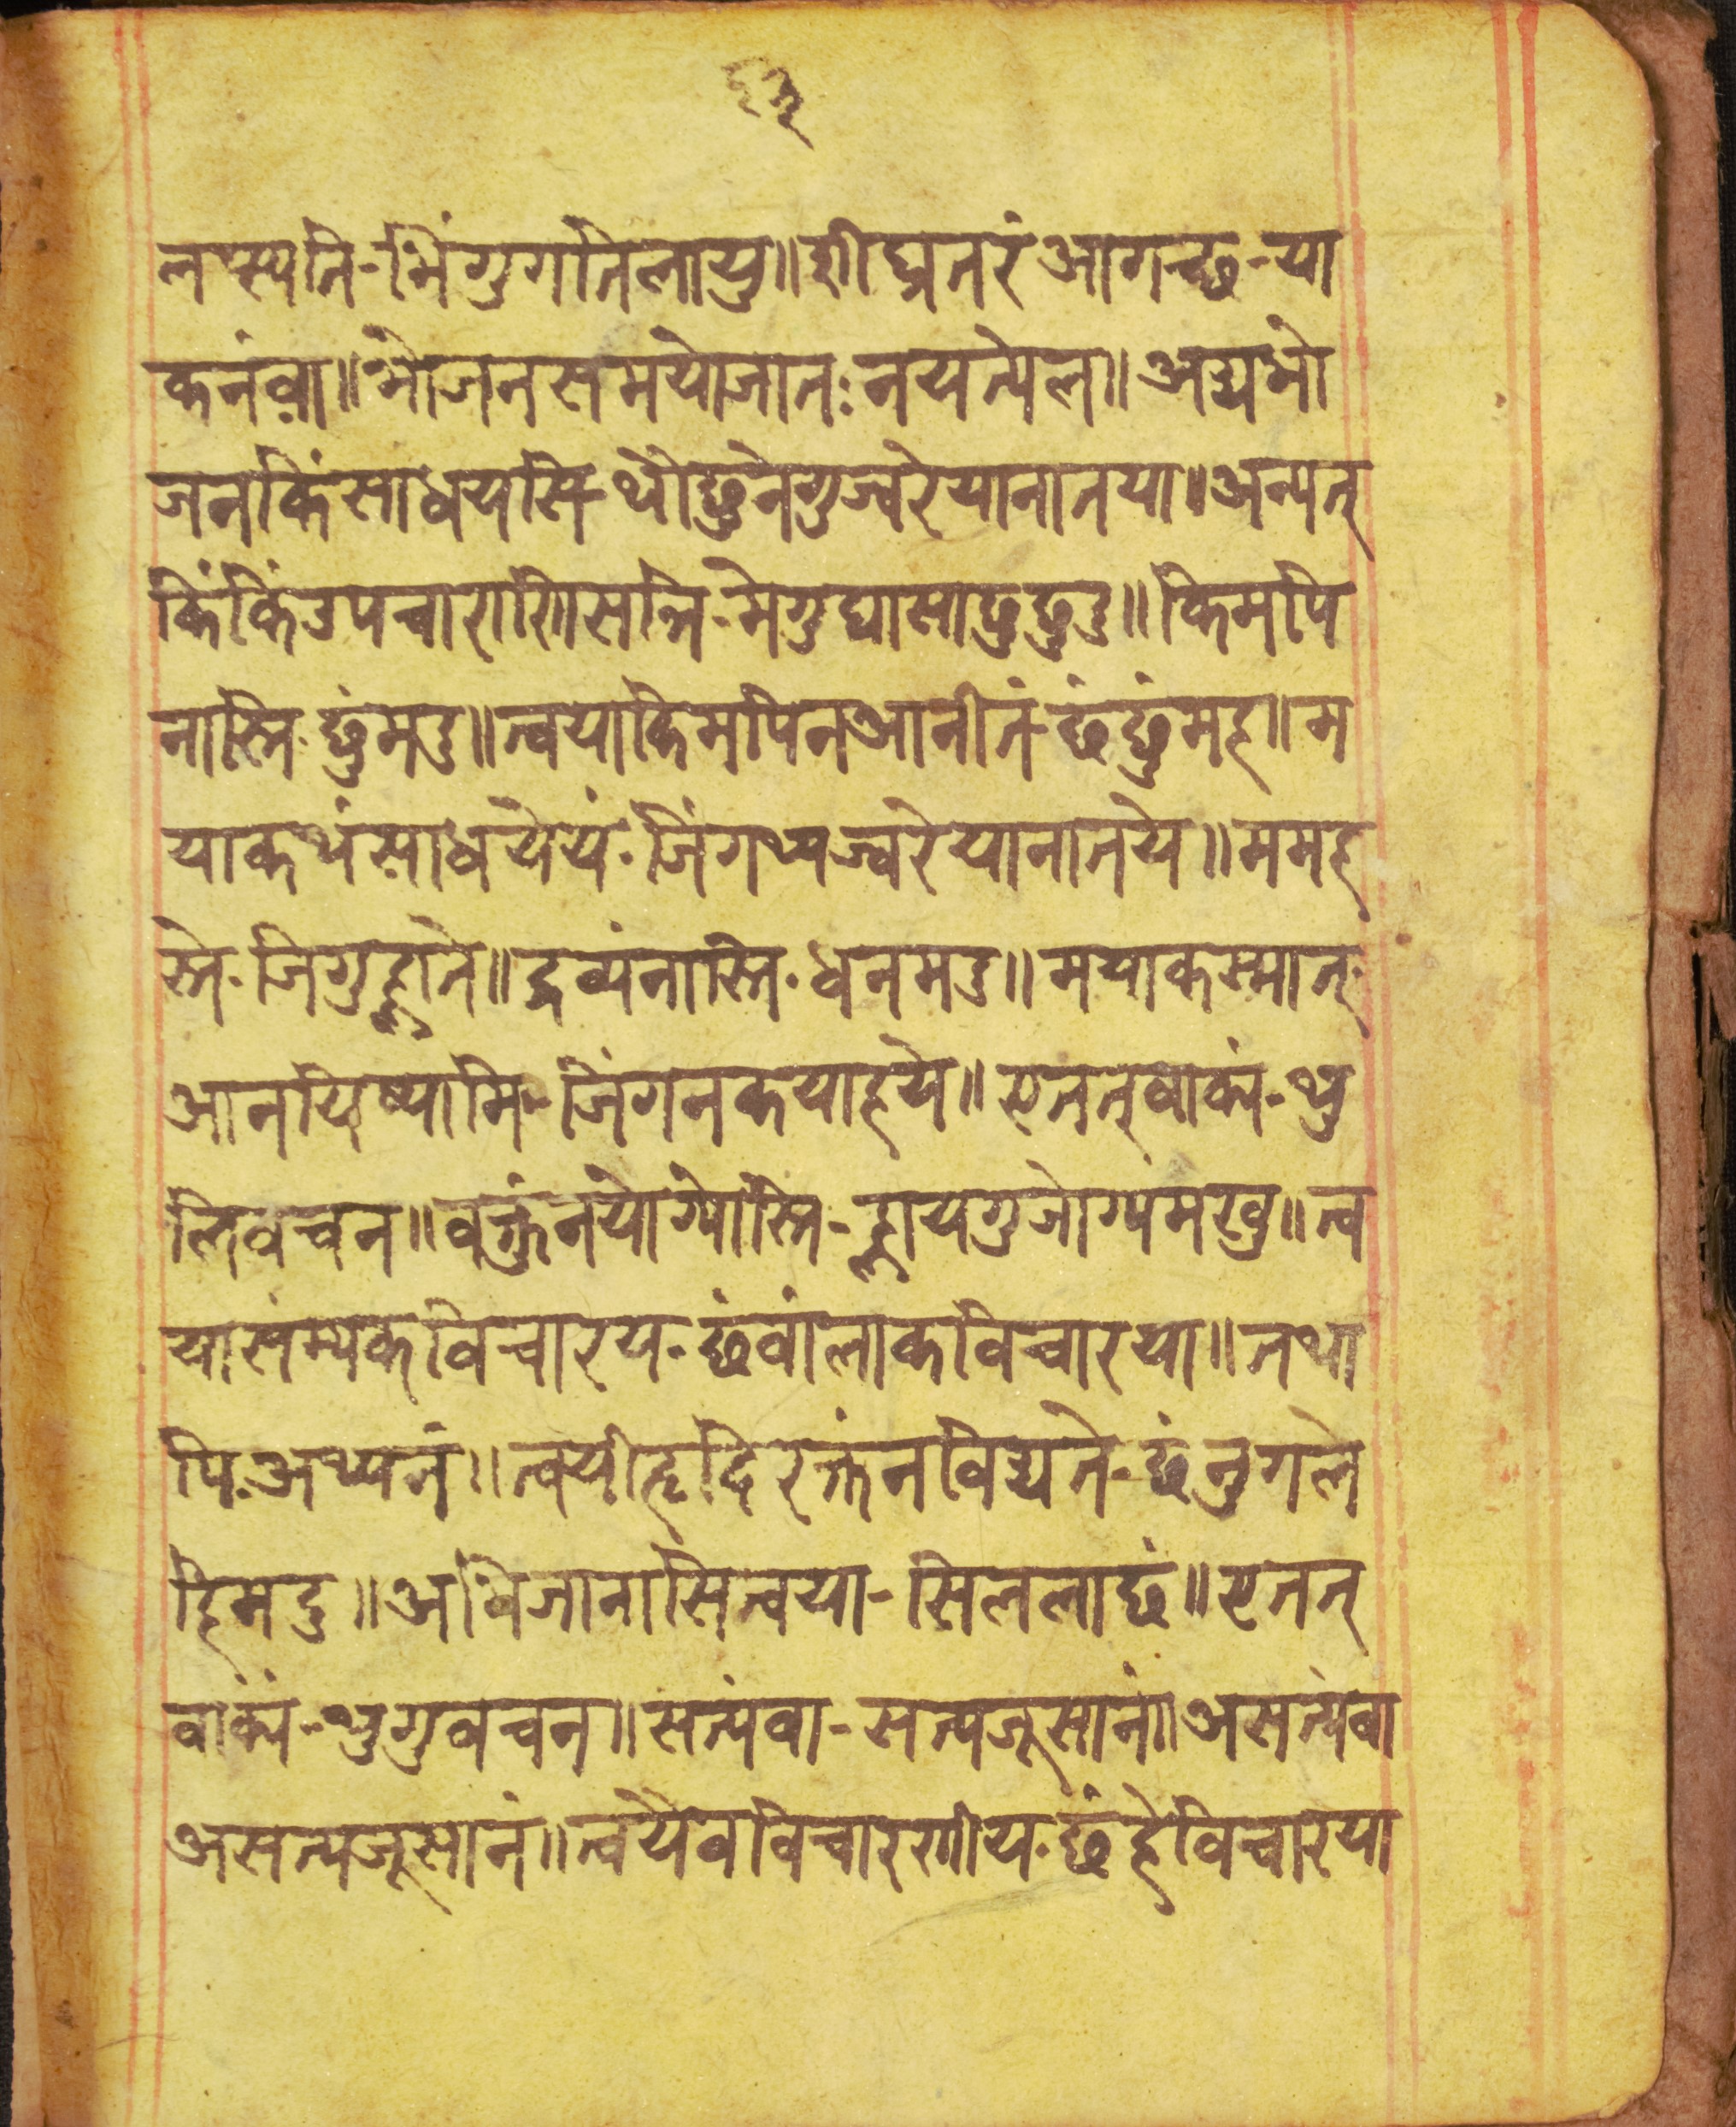 लप्स्यति-भिंगुगतिलायु॥शीघ्रतरंआगच्छ-या
कनंवा॥भोजनसमयोजातः नयत्येल॥अद्यभो
जनकिंसाधयसि-थौछुनेगुज्वरेयानातया॥अन्यत्
किंकिंउपचाराणिसन्ति-मेगुघासाछुछुउ॥किमपि
नास्ति-छुंमउ॥त्वयाकिमपिनआनीतं-छंछुंमह॥म
याकथंसाधयेयं-जिंगथ्यज्वरेयानातये॥ममह
स्ते-जिगुह्लाते॥द्रव्यंनास्ति-धनमउ॥मयाकस्मात्
आनयिष्यामि-जिंगनकयाहये॥एतत्वाक्यं-थु
लिवचन॥वक्तुंनयोग्योस्ति-ह्लायगुजोग्यमखु॥त्व
यासंम्यक्विचारय-छंवांलाकविचारया॥तथा
पि-अथ्यनं॥त्वयीहृदिरक्तंनविद्यते-छंनुगले
हिमदु॥अभिजानासित्वया-सिललाछं॥एतत्
वाक्यं-थुगुवचन॥सत्यंवा-सत्यजूसानं॥असत्यंवा
असत्यजूसानं॥त्वयैवविचारणीय-छंहेविचारया